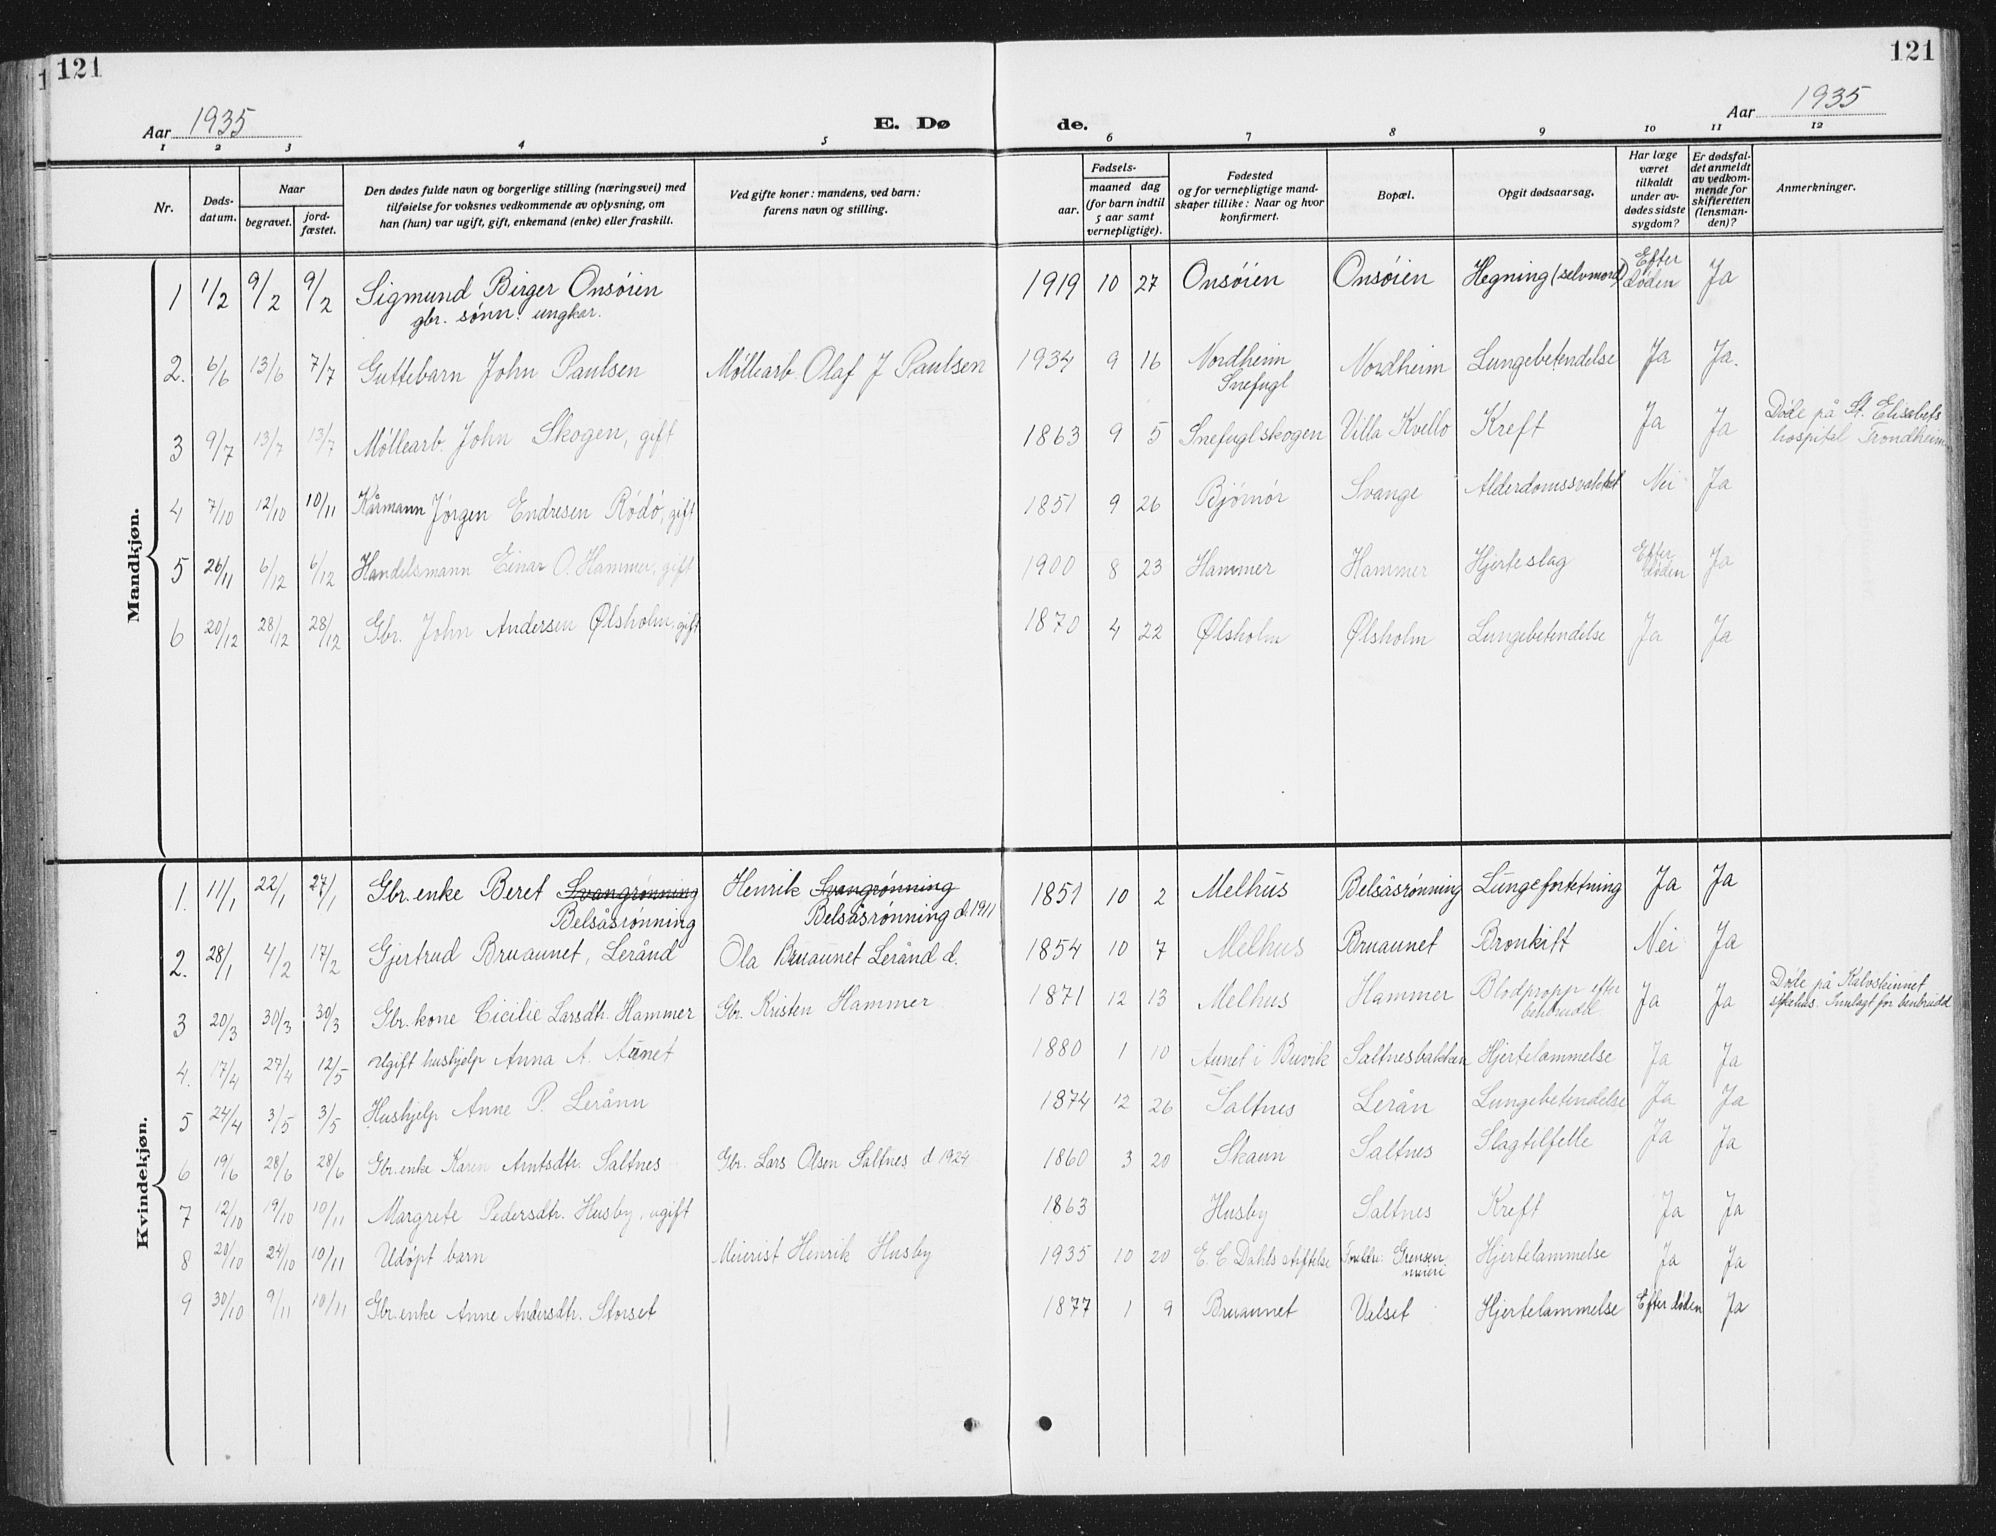 121
121
Aar 1935
E. Dø
de.
Aar 1935
1 2 3 4 5 6 7 8 9 10 11 12
Nr.
Døds-
datum.
Naar
begravet.
jord-
fæstet.
Den dødes fulde navn og borgerlige stilling (næringsvei) med
tilføielse for voksnes vedkommende av oplysning, om
han (hun) var ugift, gift, enkemand (enke) eller fraskilt.
Ved gifte koner: mandens, ved barn:
farens navn og stilling.
Fødsels-
aar.
maaned dag
(for barn indtil
5 aar samt
vernepligtige).
Fødested
og for vernepligtige mand-
skaper tillike: Naar og hvor
konfirmert.
Bopæl.
Opgit dødsaarsag.
Har læge
været
tilkaldt
under av-
dødes sidste
sygdom?
Er dødsfal-
det anmeldt
av vedkom-
mende for
skifteretten
(lensman-
den)?
Anmerkninger.
Mandkjøn.
1 1/2 9/2 9/2 Sigmund Birger Onsöien 1919 10 27 Onsöien Onsöien Hegning (selvmord) Efter døden Ja
gbr. sønn. ungkar.
2. 6/6 13/6 7/7 Guttebarn John Paulsen Møllearb. Olaf J Paulsen 1934 9 16 Nordheim Nordheim Lungebetendelse Ja Ja.
Snefugl
3 9/7 13/7 13/7 Møllearb. John Skogen, gift 1863 9 5 Snefuglskogen Villa Kvello Kreft Ja Ja Døde på St. Elisabets
hospital Trondheim
4 7/10 12/10 10/11 Kårmann Jørgen Endresen Rödö, gift 1851 9 26 Bjørnør Svange Alderdomssvakhet Nei Ja
5 26/11 6/12 6/12 Handelsmann Einar O. Hammer, gift 1900 8 23 Hammer Hammer Hjerteslag Efter døden Ja
6 20/12 28/12 28/12 Gbr. John Andersen Ølsholm, gift 1870 4 22 Ølsholm Ølsholm Lungebetendelse Ja Ja
Kvindekjøn.
1. 11/1 22/1 27/1 Gbr. enke Beret Svangrønning Henrik Svangrønning 1851 10 2 Melhus Belsåsrønning Lungefortetning Ja Ja
Belsåsrønning Belsåsrønning d. 1911
2. 28/1 4/2 17/2 Gjertrud Bruaunet, Lerånd Ola Bruaunet Lerånd d. 1854 10 7 Melhus Bruaunet Bronkitt Nei Ja
3 20/3 30/3 30/3 Gbr. kone Cicilie Larsdtr. Hammer Gbr. Kristen Hammer 1871 12 13 Melhus Hammer Blodpropp efter Ja Ja Døde på Kalvskinnet
benbrudd. sykehus. Innlagt for benbrudd
4. 17/4 27/4 12/5 Ugift hushjelp Anna A. Aunet 1880 1 10 Aunet i Buvik Saltnesbakken Hjertelammelse Ja Ja
5 24/4 3/5 3/5 Hushjelp Anne P. Lerånn 1874 12 26 Saltnes Lerån Lungebetendelse Ja Ja
6 19/6 28/6 28/6 Gbr. enke Karen Arntsdtr. Saltnes Gbr. Lars Olsen Saltnes d 1924 1860 3 20 Skaun Saltnes Slagtilfelle Ja Ja
7 12/10 19/10 10/11 Margrete Pedersdtr. Husby, ugift 1863 Husby Saltnes Kreft Ja Ja
8 20/10 24/10 10/11 Udöpt barn Meierist Henrik Husby 1935 10 20 E. C. Dahls stiftelse Foreldre: Grensen Hjertelammelse Ja Ja
meieri
9 30/10 9/11 10/11 Gbr. enke Anne Andersdtr. Storset 1877 1 9 Bruaunet Velset Hjertelammelse Efter døden Ja